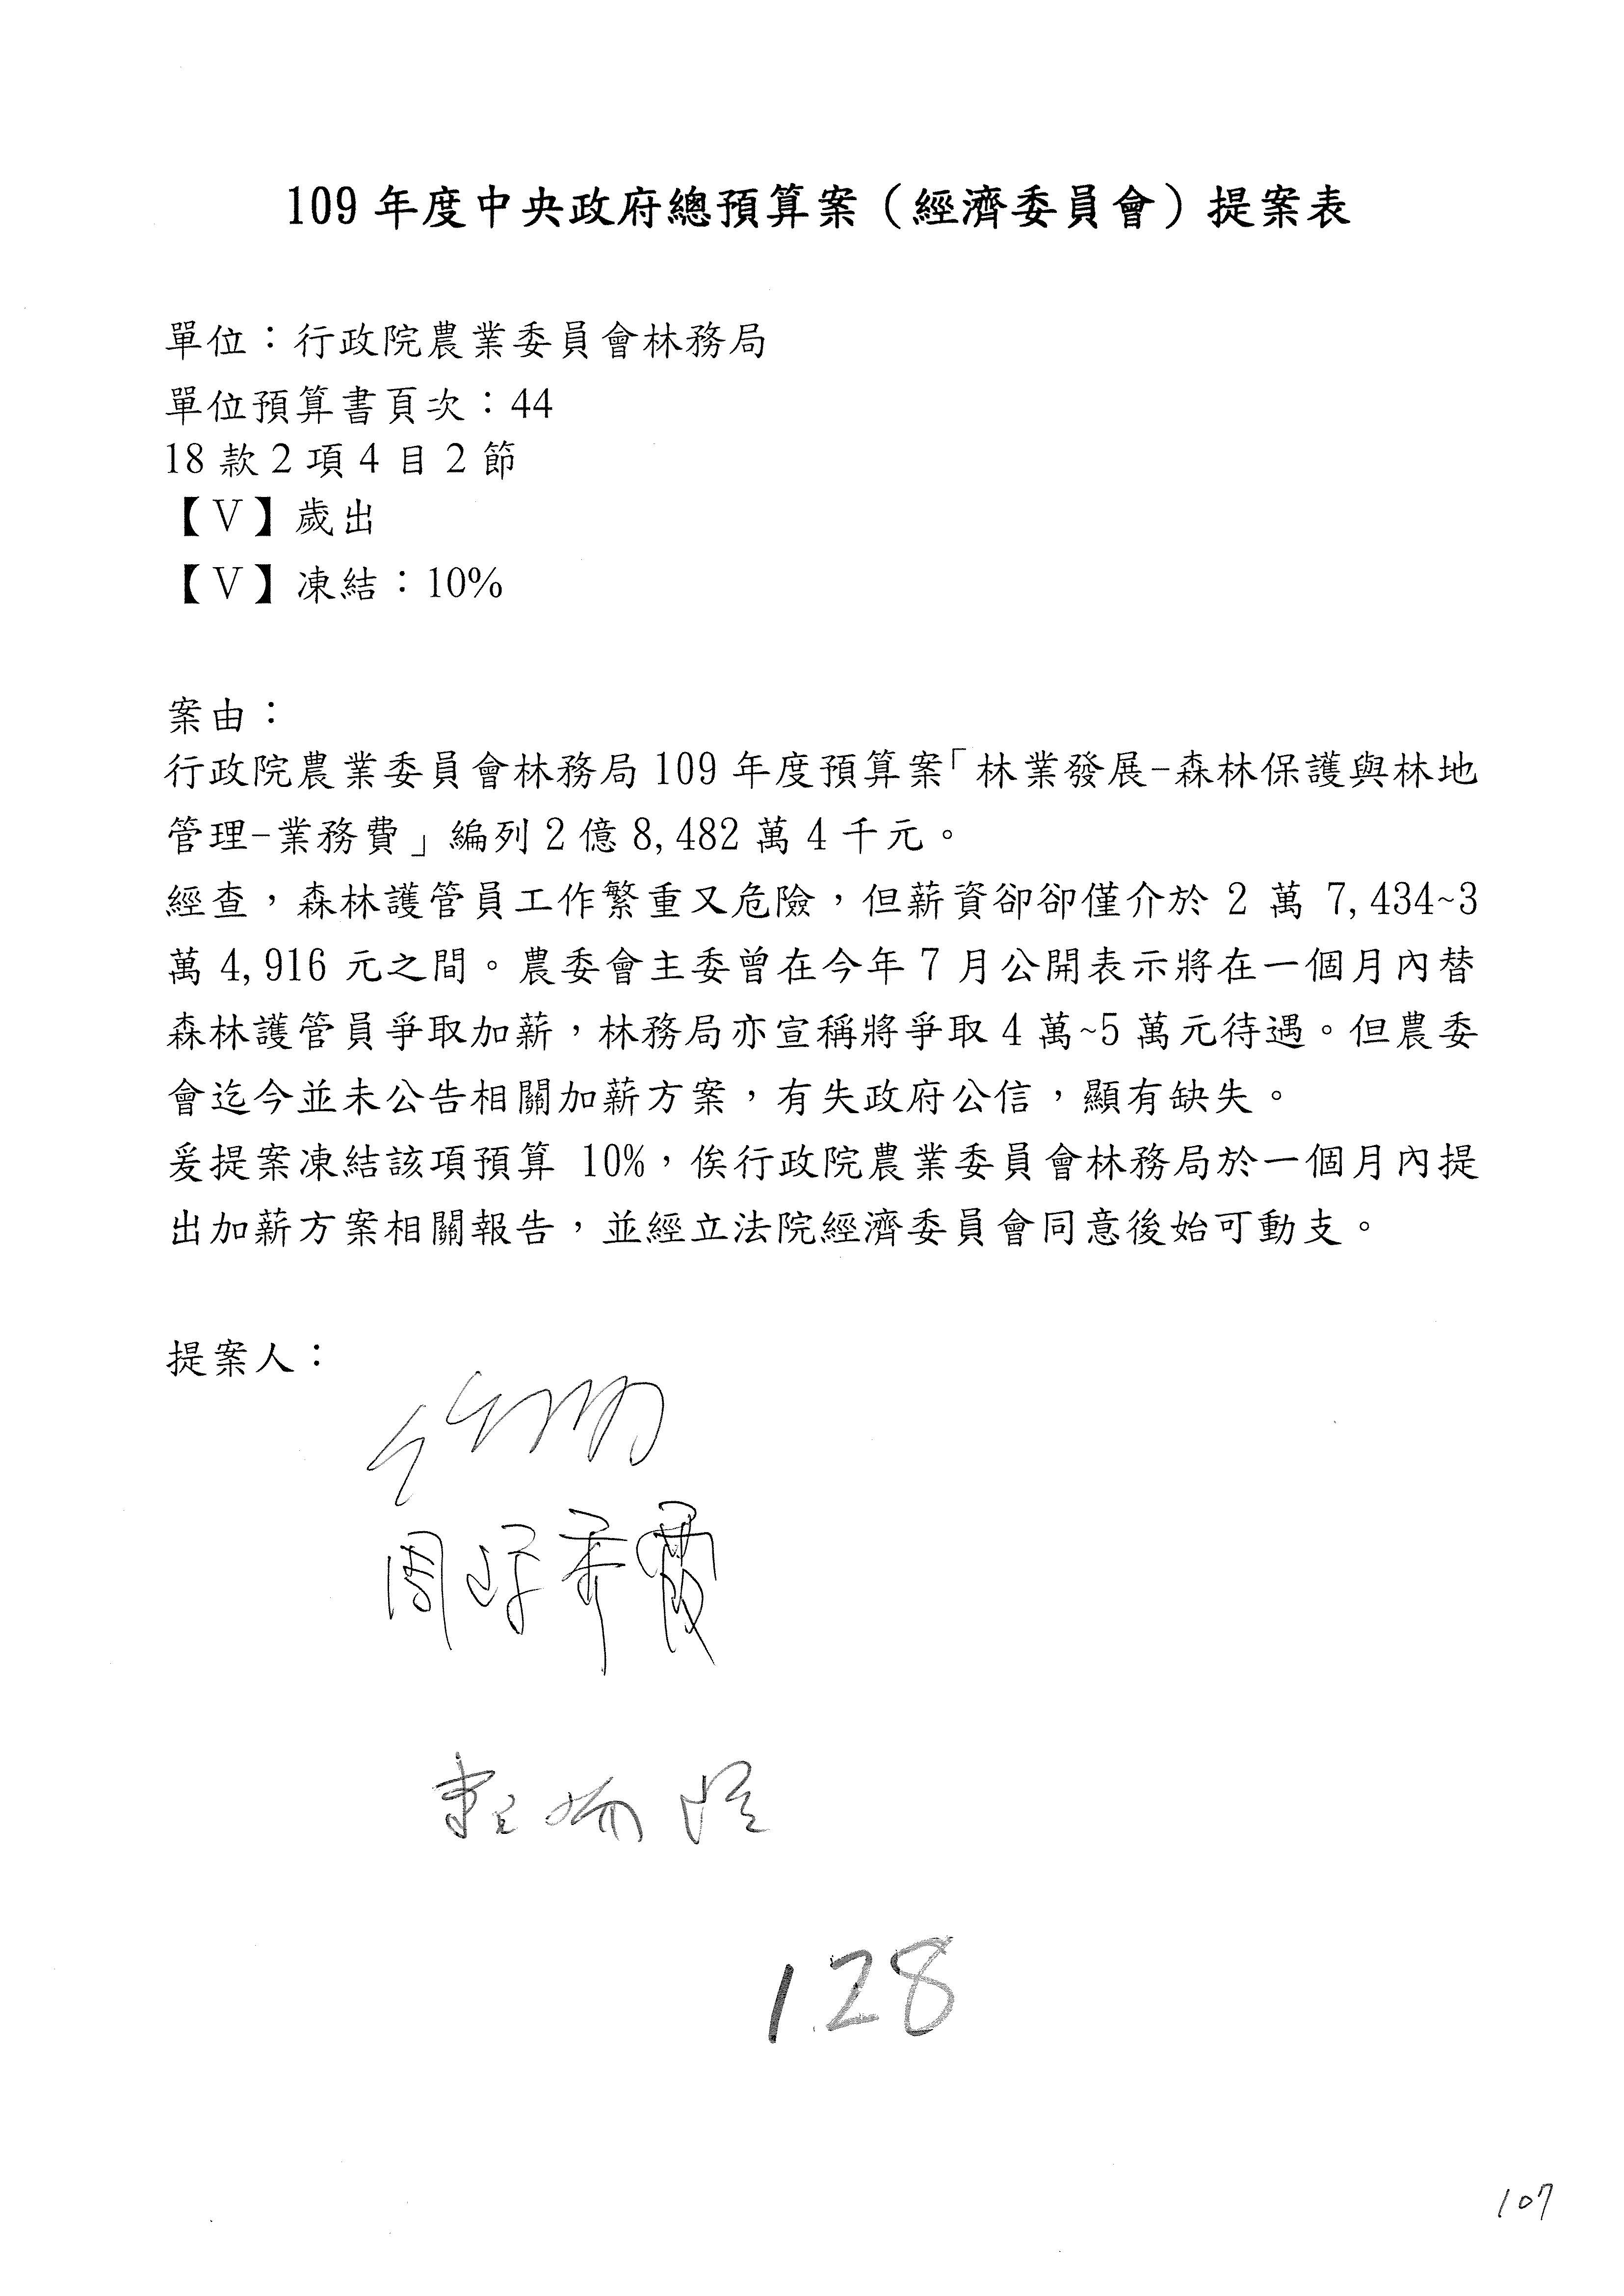 109 年度中央政府總預算案（經濟委員會）提案表
單位：行政院農業委員會林務局
單位預算書頁次：44
18 款 2 項 4 目 2 節
【V】歲出
【V】凍結：10%
案由：
行政院農業委員會林務局 109 年度預算案「林業發展-森林保護與林地
管理-業務費」編列 2 億 8,482 萬 4 千元。
經查，森林護管員工作繁重又危險，但薪資卻卻僅介於 2 萬 7,434~3
萬 4,916 元之間。農委會主委曾在今年 7 月公開表示將在一個月內替
森林護管員爭取加薪，林務局亦宣稱將爭取 4 萬~5 萬元待遇。但農委
會迄今並未公告相關加薪方案，有失政府公信，顯有缺失。
爰提案凍結該項預算 10%，俟行政院農業委員會林務局於一個月內提
出加薪方案相關報告，並經立法院經濟委員會同意後始可動支。
提案人：
周陳秀霞
128
107